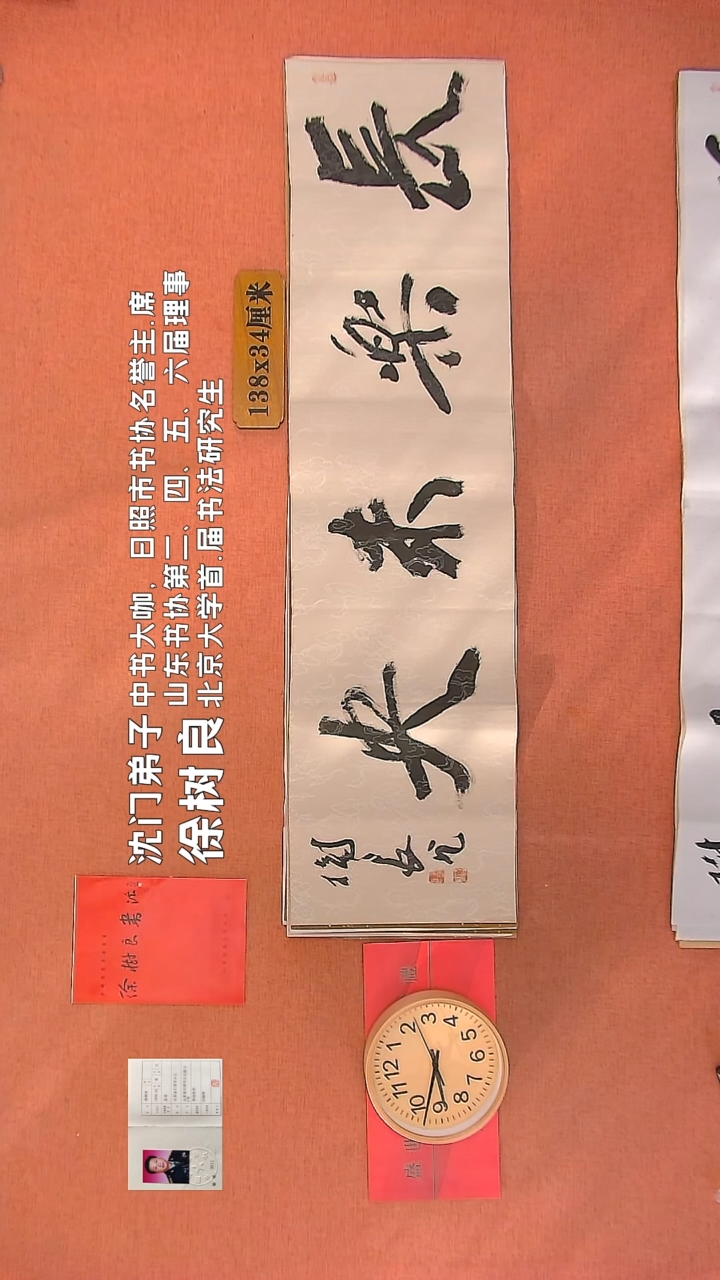 沈门弟子
徐树良
中书大咖,日照市书协名誉主.席
山东书协第二、四、五、六届理事
北京大学首.届书法研究生
138x34厘米
長樂未央
徐樹良書法
1 2 3 4 5 6 7 8 9 10 11 12